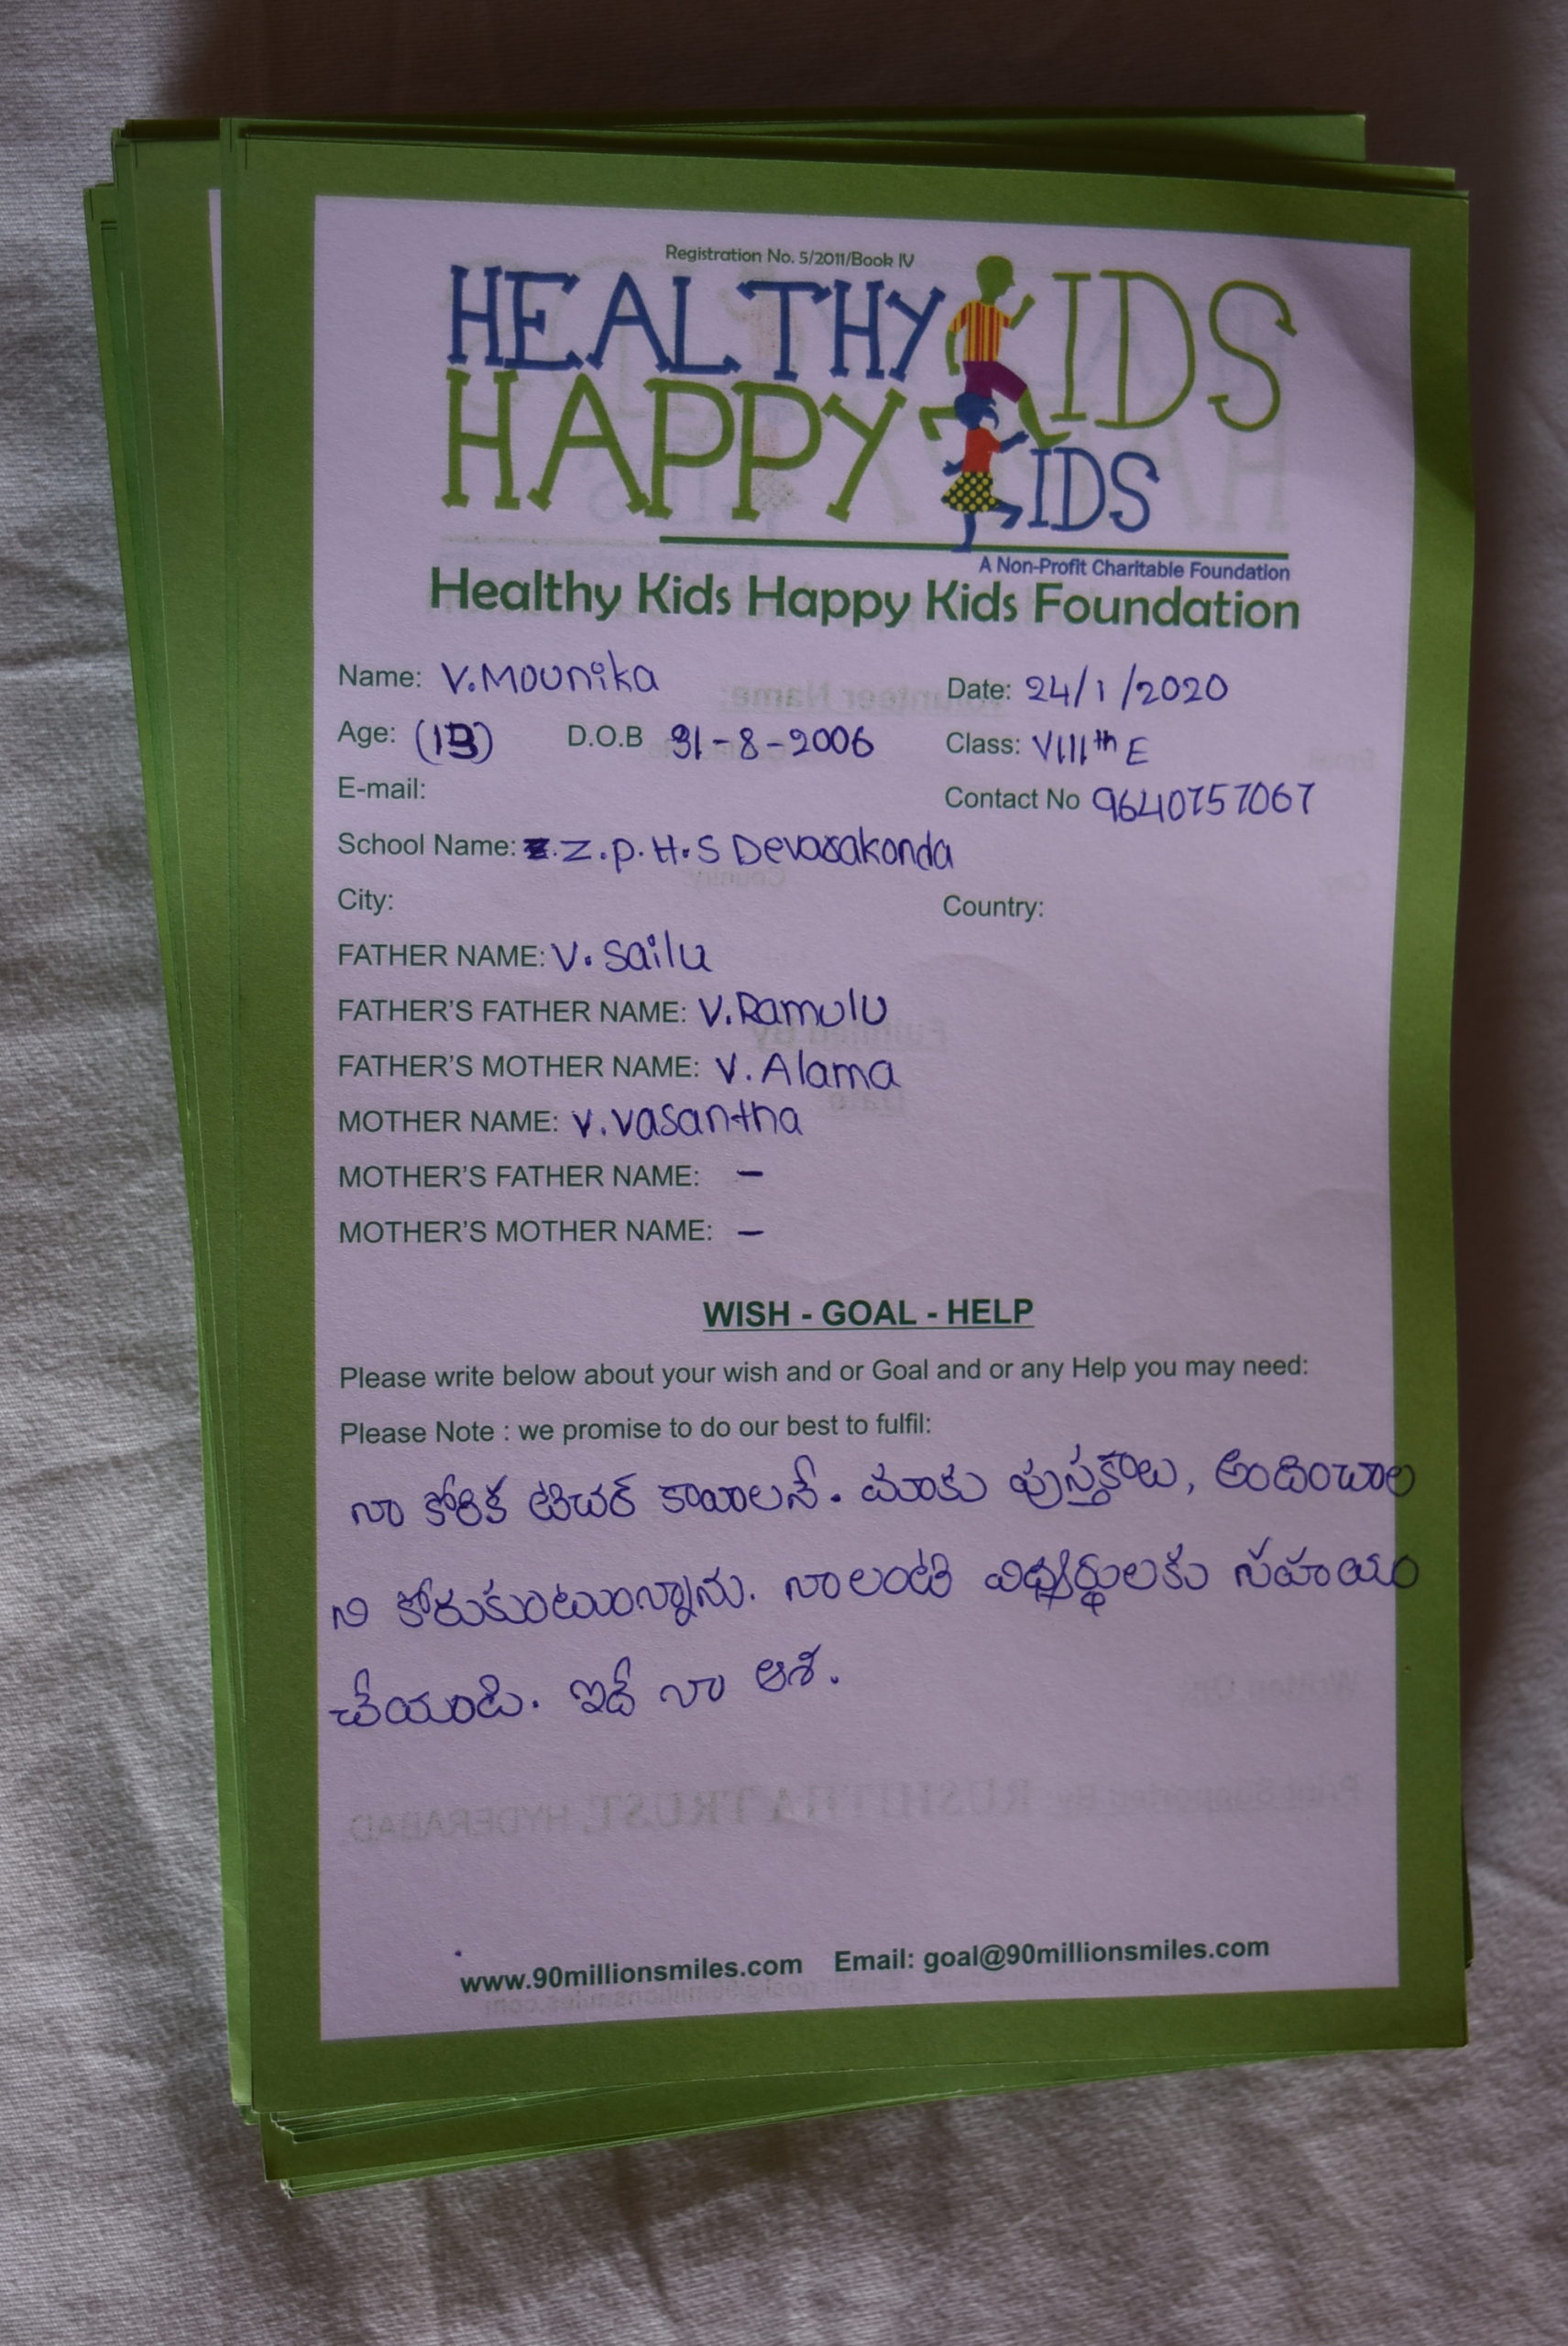 Registration No. 5/2011/Book IV
HEALTHY KIDS
HAPPY KIDS
A Non-Profit Charitable Foundation
Healthy Kids Happy Kids Foundation
Name: V. Mounika Date: 24/1/2020
Age: (13) D.O.B 31-8-2006 Class: VIIIth E
E-mail: Contact No 9640757067
School Name: Z.P.H.S Devarakonda
City: Country:
FATHER NAME: V. Sailu
FATHER'S FATHER NAME: V. Ramulu
FATHER'S MOTHER NAME: V. Alama
MOTHER NAME: V. Vasantha
MOTHER'S FATHER NAME: –
MOTHER'S MOTHER NAME: –
WISH - GOAL - HELP
Please write below about your wish and or Goal and or any Help you may need:
Please Note : we promise to do our best to fulfil:
నా కోరిక టిచర్ కావాలనే. మాకు పుస్తకాలు, అందించాల
ని కోరుకుంటుంన్నాను. నాలంటి విధ్యర్థులకు సహయం
చేయండి. ఇదే నా ఆశ.
www.90millionsmiles.com Email: goal@90millionsmiles.com